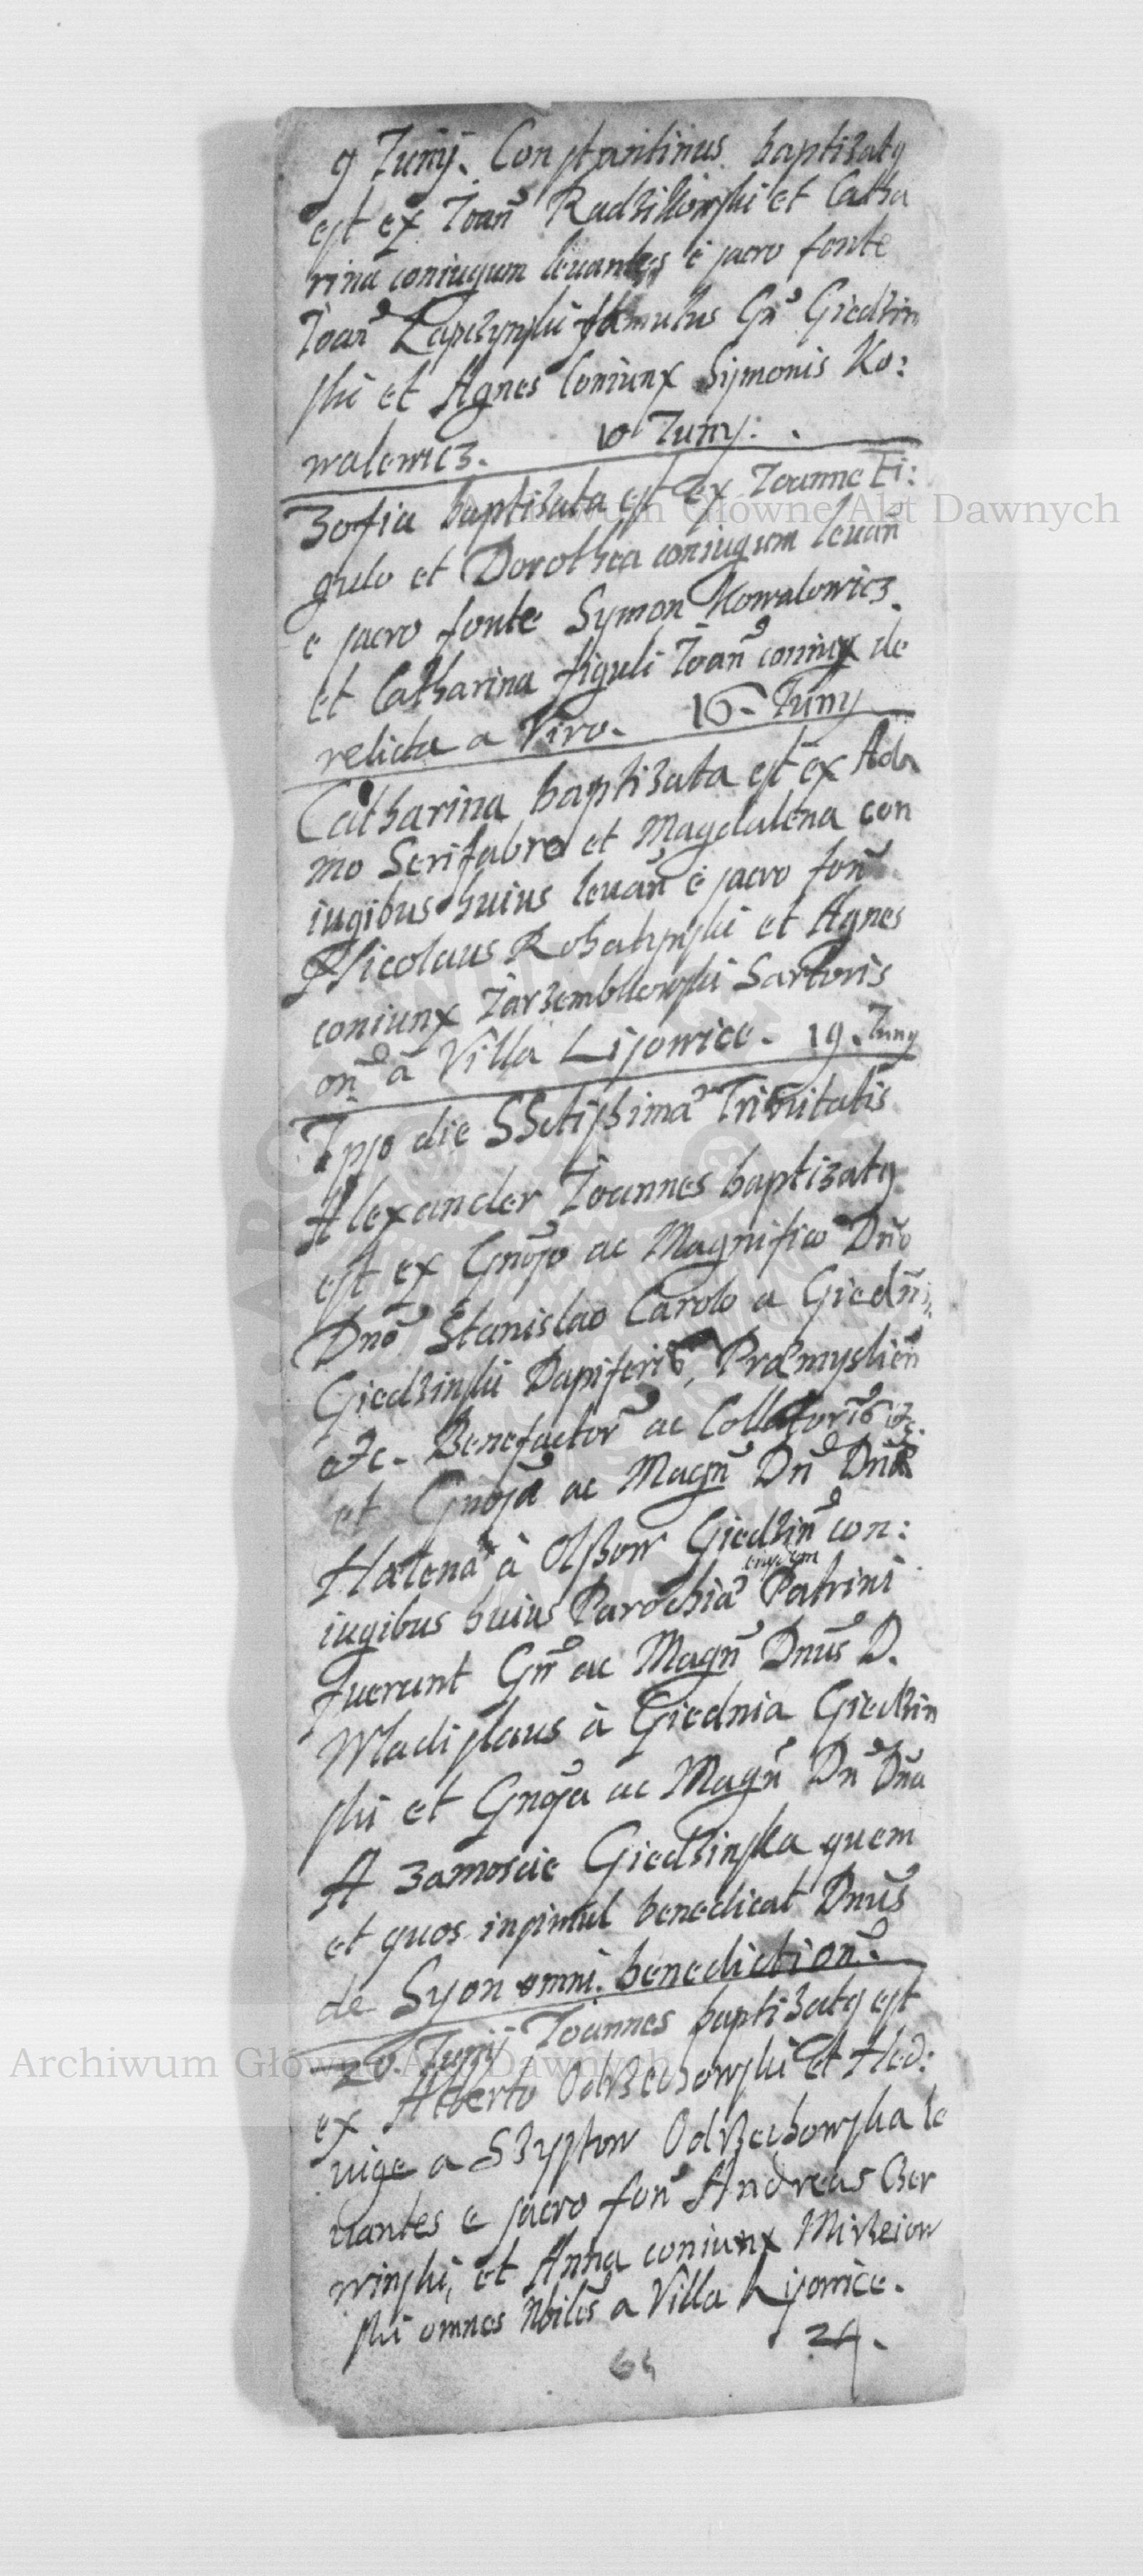 9 Junij. Constantinus baptizatq
est ex Joan̄ Radziłłowski et Catha
rina coniugum leuantes è sacro fonte
Joan̄ Łapczynski famulus Gn̄ Giedzin
ski et Agnes Coniunx Symonis Ko:
walewicz. 10 Juny:
Zofia baptizata est ex Joanne Fi:
gulo et Dorothea coniugum leuan̄
e sacro fonte Symon Kowalowicz
et Catharina figuli Joan̄ coniux de
relicta a Viro. 16. Juny
Catharina baptizata est ex Ada
mo Serifabro et Magdalena con
iugibus huius leuan̄ è sacro fon̄
Nicolaus Rohatynski et Agnes
coniunx Jarzembkowski Sartoris
on̄ à Villa Lisowice. 19. Juny
Ipso die SSctissima Trinitatis
Alexander Joannes baptizatq
est ex Gnoso ac Magnifico Dn̄o
Dn̄o Stanislao Carolo a Giedn̄i
Giedzinski Dapiferis Præmyslien̄
etc. Benefactor ac Collatoris etc.
et Gnosa ac Magn̄ Dn̄ Dn̄a
Halena à Olszow Giedzin̄ con:
iugibus huius Parochia eiusdem Patrini
fuerunt Gn̄ ac Magn̄ Dn̄us D.
Wladislaus à Giednia Giedzin
ski et Gnosa ac Magn̄ Dn̄ Dn̄a
A Zamoscie Giedzinska quem
et quos insimul benedicat Dn̄us
de Syon omni. benediction̄.
20. Junij Joannes baptizatq est
ex Alberto Odrzechowski et Hed:
uige a Szystow Odrzechowska le
uantes e sacro fon̄ Andreas Ber
winski, et Anna coniunx Mirzeiow
ski omnes Nbiles a Villa Lisowice.
24.
64
Archiwum Główne Akt Dawnych
Archiwum Główne Akt Dawnych